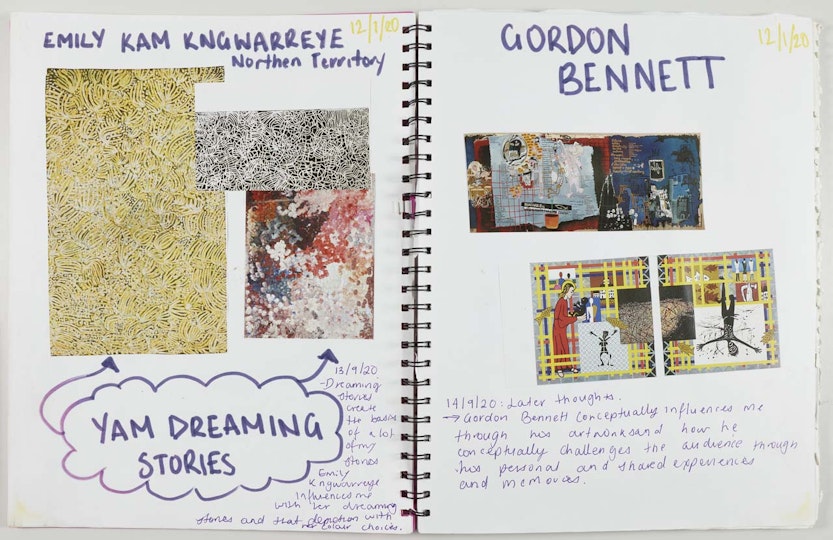 12/1/20
EMILY KAM KNGWARREYE
Northen Territory
YAM DREAMING
STORIES
13/9/20
-Dreaming
stories
create
the basis
of a lot
of my
stories
Emily
Kngwarreye
influences me
with her dreaming
stories and that depiction with
her colour choices.
12/1/20
GORDON
BENNETT
14/9/20: Later thoughts.
→ Gordon Bennett conceptually influences me
through his artworks and how he
conceptually challenges the audience through
his personal and shared experiences
and memories.